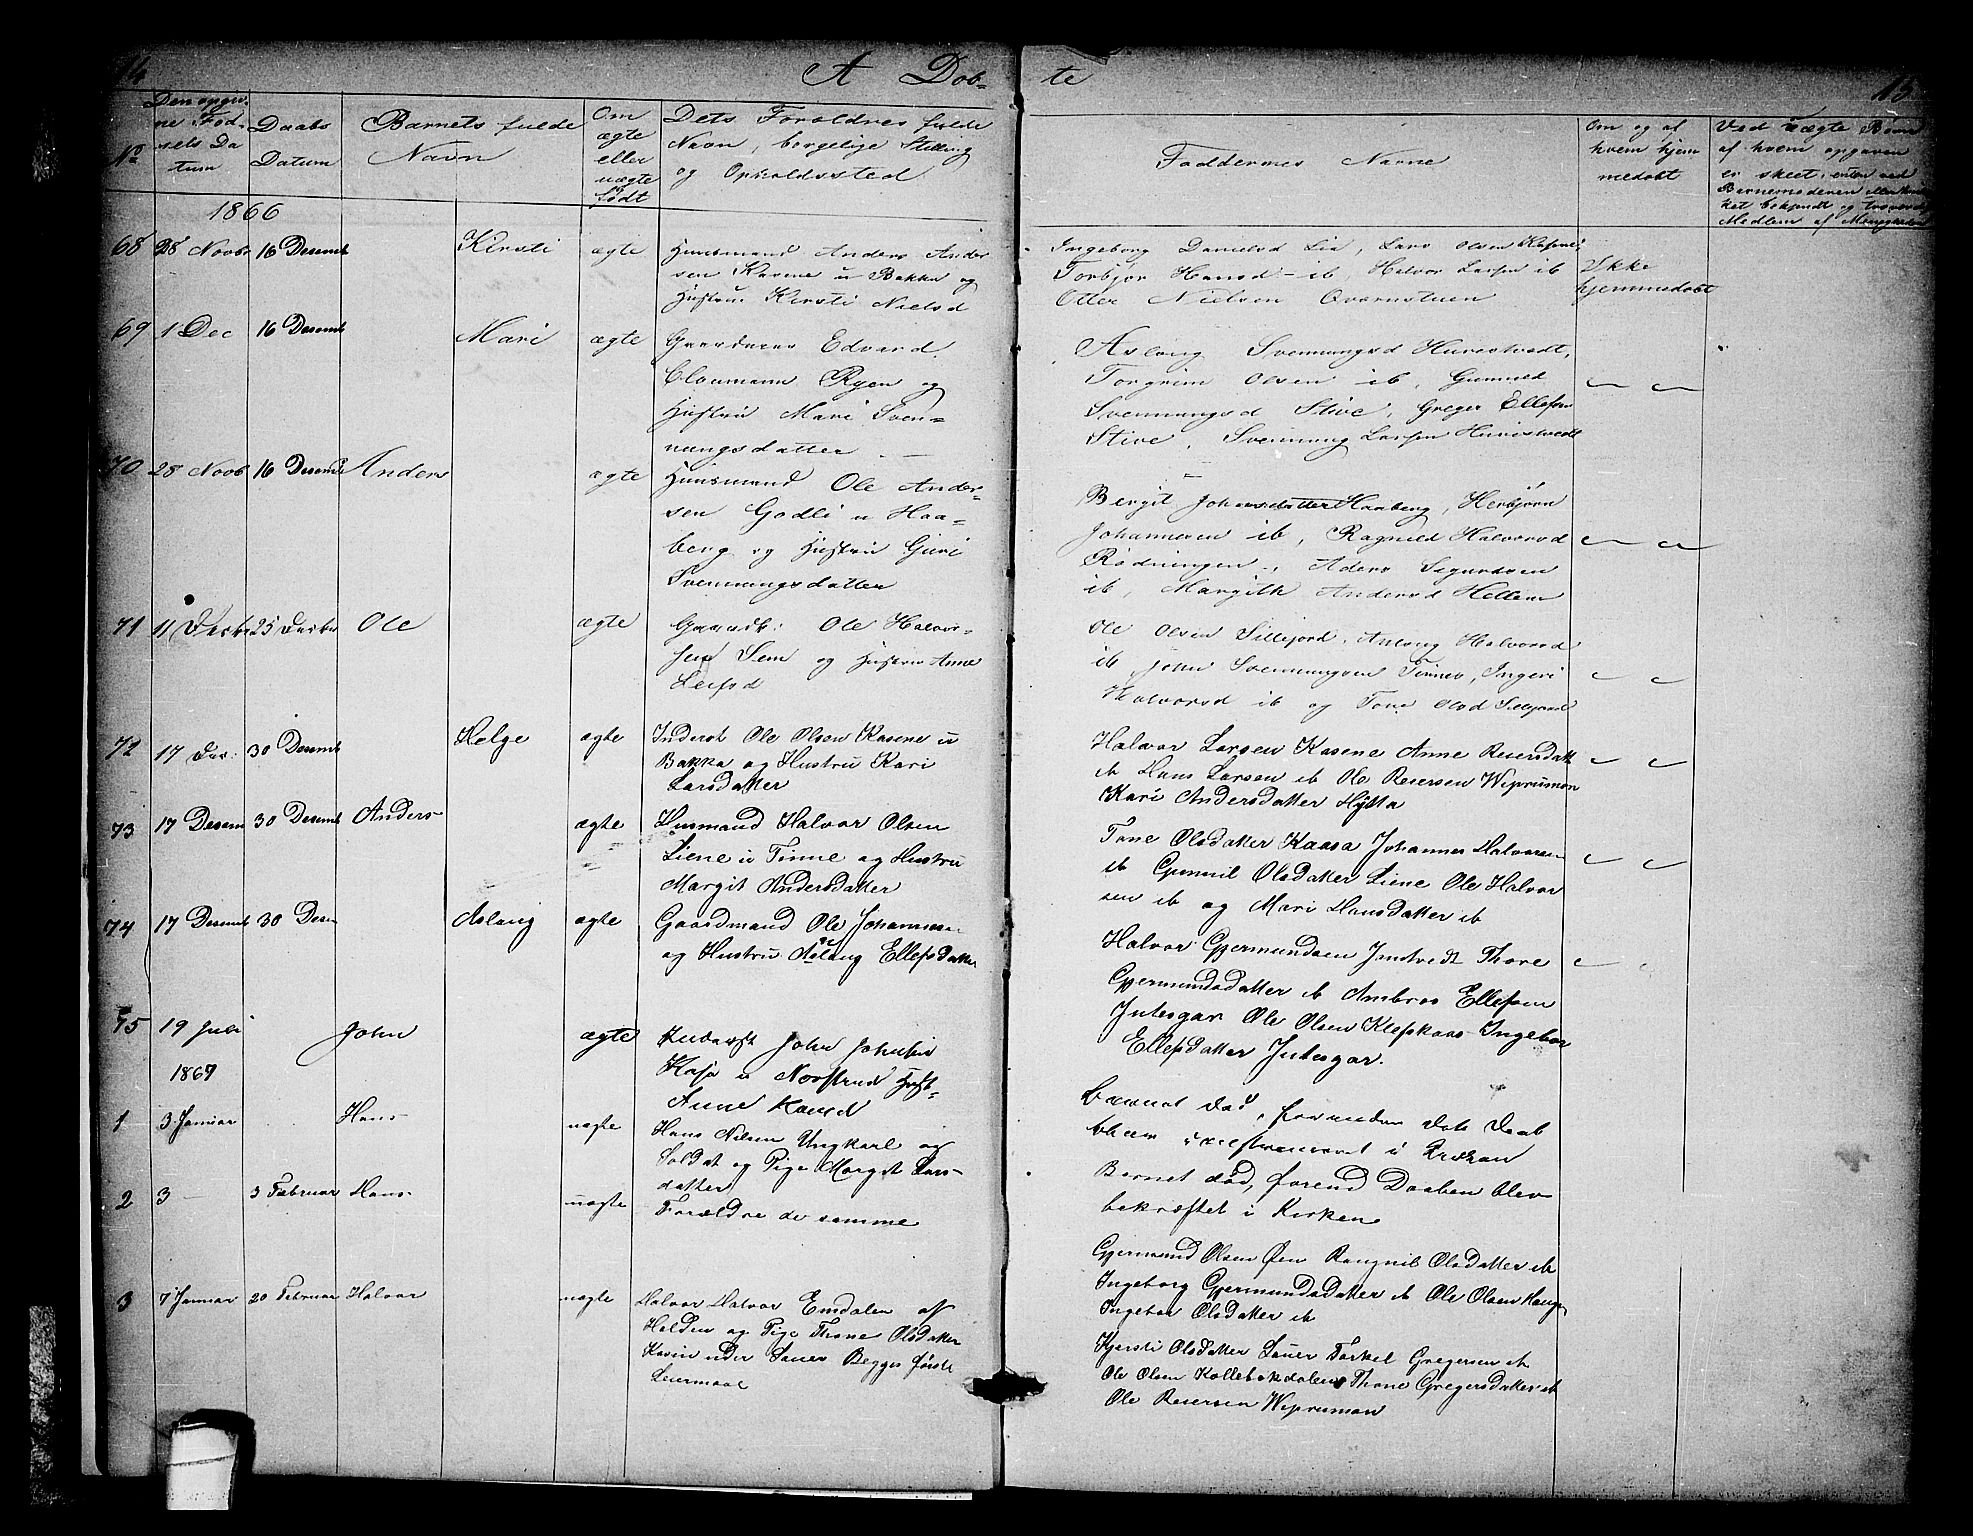 14
A Dob-
te
15
No
Den opgiv.
ne Fød-
sels Da
tum
Daabs
Datum
Barnets fulde
Navn
Om
ægte
eller
uægte
født
Dets Forældres fulde
Navn, borgelige Stilling
og Opholdssted
Faddernes Navne
Om og af
hvem hjem
medøbt
Ved uægte Børn
af hvem opgaven
er skeet, enten ved
Barnemoderen eller
ket bekjendt og
Medlem af Menigheden
1866
68 28 Novbr 16 Desemb Kirsti ægte Huusmand Anders Ander
sen Kasene u Bakka og
Hustru Kirsti Nielsd
Ingeborg Danielsd Lia, Lars Olsen Kasene
Torbjør Hansd ib, Halvor Larsen ib
Otter Nielsen Qværnstuen
Ikke
hjemmedøbt
69 1 Dec 16 Desemb Mari ægte Edvard
Cloumann Ryen og
Hustru Mari Sven-
nungsdatter
Asloug Svennungsd
Torgrim Olsen ib, Gunnild
Svennungsd Stive, Greger Ellefsen
Stive, Svennung Larsen
70 28 Novb 16 Desemb Anders ægte Huusmand Ole Ander-
sen Godli u Haa-
berg og Hustru Guri
Svennungsdatter
Bergit Johannesdatter Haaberg, Herbjørn
Johannesen ib, Ragnild Halvorsd
Rødningen, Aders Sigurdsen
ib, Margith Andersd Hellem
71 11 Desbr 25 Desbr Ole ægte Gaardb: Ole Halvor-
sen Sem og Hustru Anne
Leifsd
Ole Olsen Sillejord, Aslaug Halvorsd
ib John Svennungsen Tinnes, Ingeri
Halvorsd ib og Tone Olsd Sillejord
72 17 Des. 30 Desemb Helge ægte Inderst Ole Olsen Kasene u
Bakka og Hustru Kari
Larsdatter
Halvor Larsen Kasene Anne Reiersdatt
ib Hans Larsen ib Ole Reiersen Wiprumon
Kari Andersdatter Hytta
73 17 Desem 30 Desemb Anders ægte Husmand Halvor Olsen
Liene u Tinne og Hustru
Margit Andersdatter
Tone Olsdatter Kaasa Johannes Halvorsen
ib Gunnil Olsdatter Liene Ole Halvor
sen ib og Mari Hansdatter ib
74 17 Desemb 30 Desem Aslaug ægte Gaardmand Ole Johannesen
og Hustru Aslaug Ellefsdatter
Halvor Gjermundsen Thore
Gjermundsdatter ib Ambros Ellefsen
Jutesgar Ole Olsen Klefskaas Ingebor
Ellefsdatter Jutesgar.
75 19 Juli John ægte Inderst John Johnsen
Kasa u Hust-
Anne
1867
1 3 Januar Hans uægte Hans Nilsen Ungkarl og
Soldat og Pige Margit Lars-
datter
Barnet død, forinden Daab
i Kirken
2 3 - 3 Februar Hans uægte Forældre de samme
Barnet død, førend Daaben blev
bekræftet i Kirken
3 7 Januar 20 Februar Halvor uægte Halvor Halvor Emdalen af
Holden og Pige Thone Olsdatter
Kasin under Sauer Begges første
Leiermaal
Gjermund Olsen Øen Rangnil Olsdatter ib
Ingeborg Gjermundsdatter ib Ole Olsen Haugen
Ingebor Olsdatter ib
Kjersti Olsdatter Sauer Torkel Gregersen ib
Ole Olsen Kollebækdalen Thone Gregersdatter ib
Ole Reiersen Wiprumon